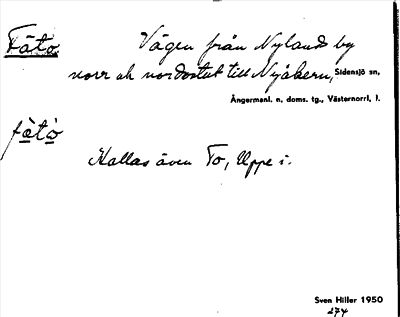 Fätö Vägen från Nylands by
norr ok nordostut till Nyåkern, Sidensjö sn,
Ångermanl. n. doms. tg., Västernorrl. l.
fà̱tò̱
Kallas även To, Uppe i.
Sven Hiller 1950
274